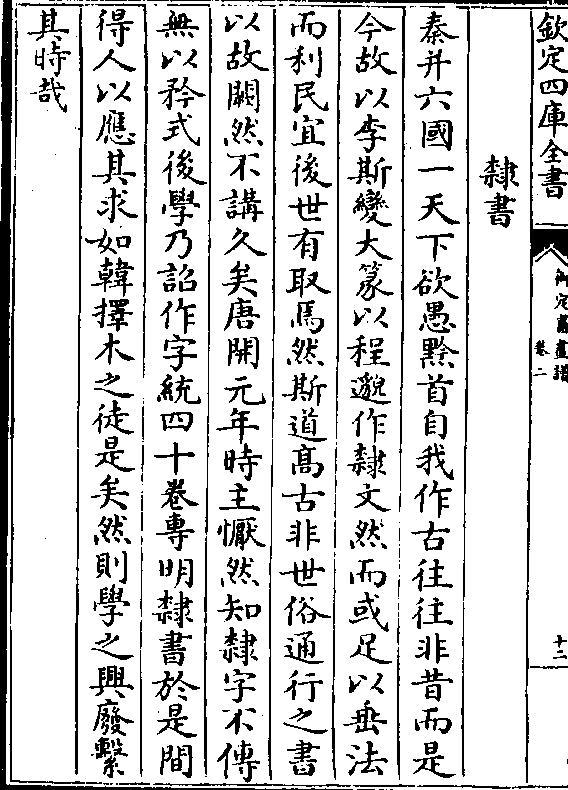 欽定四庫全書
御定書畫譜
卷二
十二
隸書
秦并六國一天下欲愚黔首自我作古往往非昔而是
今故以李斯變大篆以程邈作隸文然而或足以垂法
而利民宜後世有取焉然斯道髙古非世俗通行之書
以故闕然不講久矣唐開元年時主懨然知隸字不傳
無以矜式後學乃詔作字統四十卷專明隸書於是間
得人以應其求如韓擇木之徒是矣然則學之興廢繫
其時哉